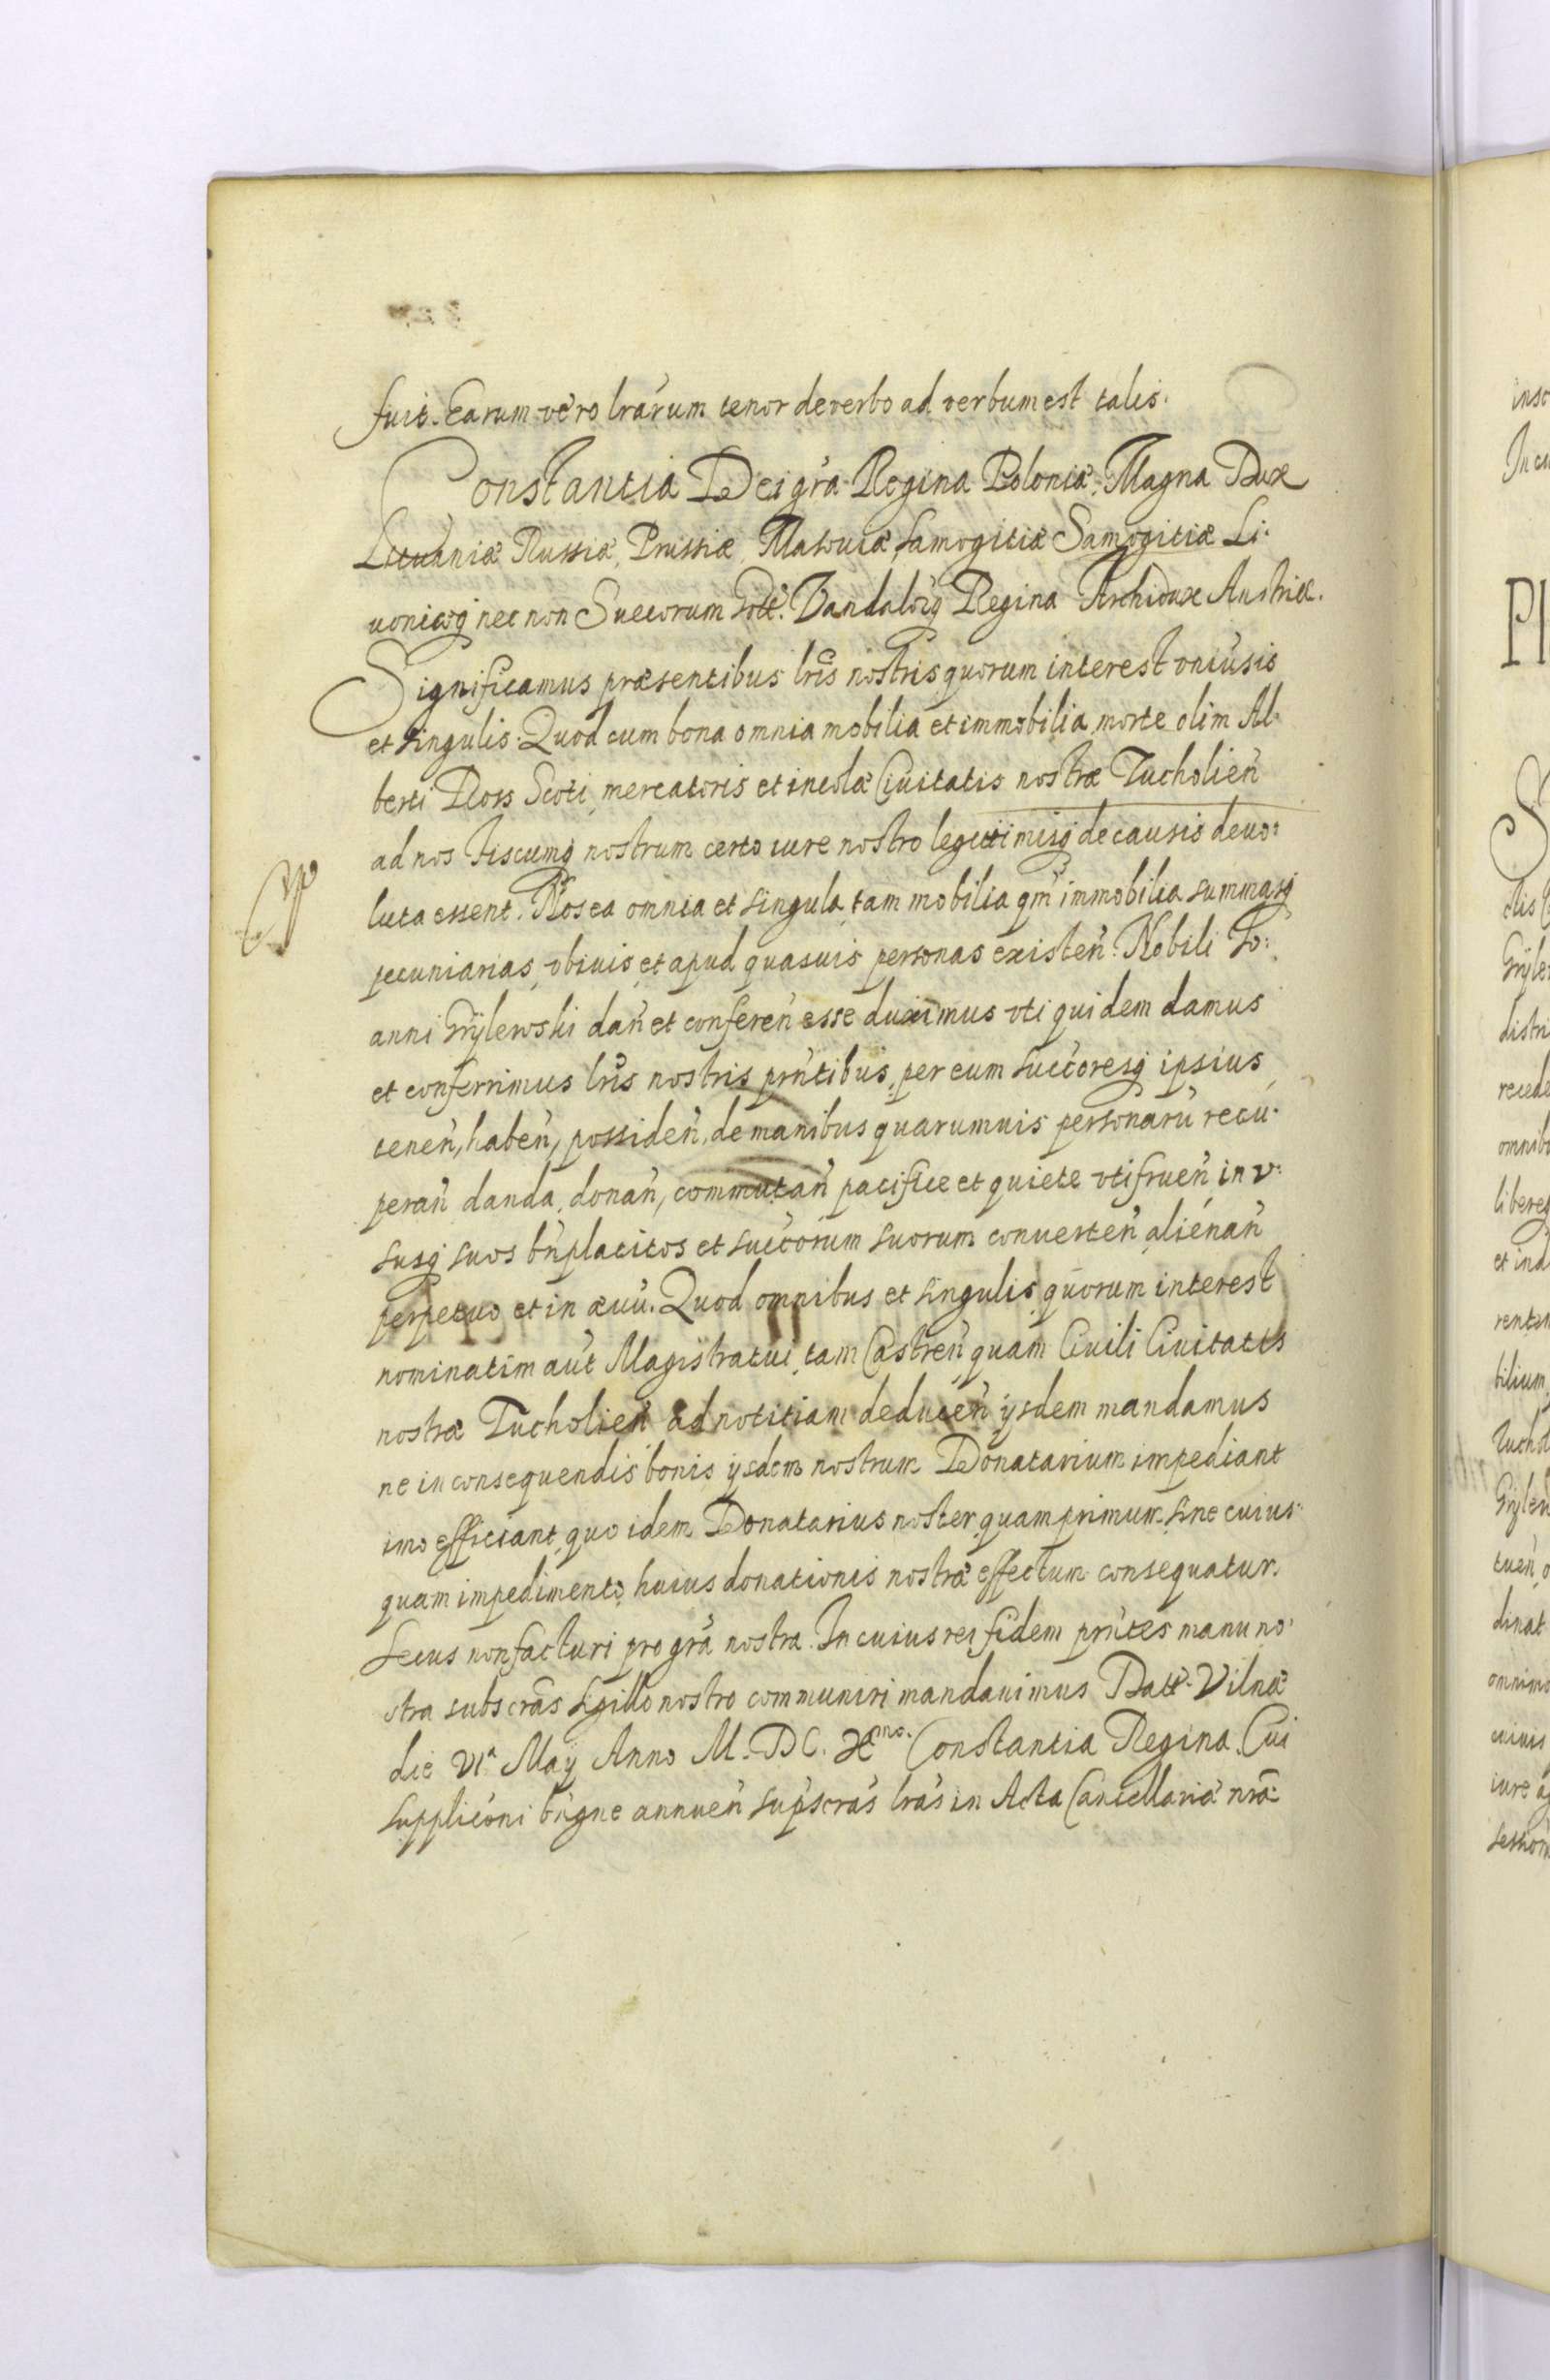 fuit. Earum vero lrarum tenor de verbo ad verbum est talis.
Constantia Dei grā Regina Poloniæ, Magna Dux
Lituaniæ Russiæ, Prussiæ, Masouiæ, Samogitiæ Samogitiæ Li-
uoniæq nec non Suecorum Gott. Vandaloꝝq Regina Archidux Austriæ.
Significamus præsentibus lris nostris quorum interest vniusis
et singulis. Quod cum bona omnia mobilia et immobilia morte olim Al-
berti Ross Scoti mercatoris et incolæ Ciuitatis nostræ Tucholień
ad nos Fiscumq nostrum certo iure nostro legittimisq de causis deuo-
luta essent. Nos ea omnia et singula tam mobilia qm immobilia summasq
pecuniarias, vbiuis et apud quasuis personas existeń. Nobili Io-
anni Grÿlewski dań et confereń esse duximus vti quidem damus
et conferrimus lris nostris prńtibus, per eum succoresq ipsius
teneń, habeń, possideń, de manibus quarumuis personarū recu-
perań danda, donań, commutań pacifice et quiete vtifrueń in v-
susq suos bńplacitos et succorum suorum conuerteń alienań
perpetuo et in æuū. Quod omnibus et singulis quorum interest
nominatim aut Magistratui tam Castreń quam Ciuili Ciuitatis
nostræ Tucholień ad notitiam deduceń ijsdem mandamus
ne in consequendis bonis ijsdem nostrum Donatarium impediant
imo efficiant, quo idem Donatarius noster quamprimum sine cuius-
quam impedimento huius donationis nostræ effectum consequatur.
Secus non facturi pro grā nostra. In cuius rei fidem prńtes manu no-
stra subscrās sigillo nostro communiri mandauimus Datt. Vilnæ
die VIᵃ Maij Anno M. DC. Xᵐᵒ. Constantia Regina. Cui
suppliconi bńgne annueń supscrās lrās in Acta Cancellariæ nræ